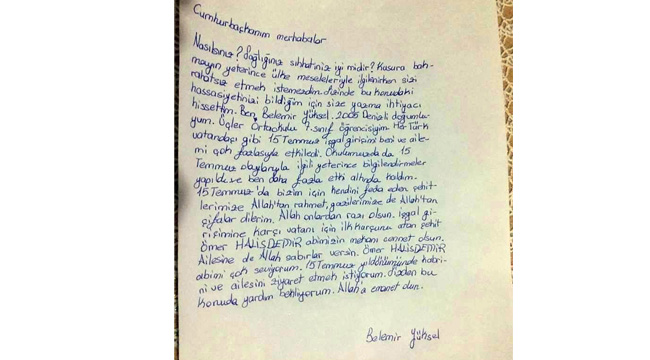 Cumhurbaşkanım merhabalar
Nasılsınız? Sağlığınız sıhhatiniz iyi midir? Kusura bak-
mayın yeterince ülke meseleleriyle ilgilenirken sizi
rahatsız etmek istemezdim. Sizinde bu konudaki
hassasiyetinizi bildiğim için size yazma ihtiyacı
hissettim. Ben, Belemir Yüksel. 2005 Denizli doğumlu-
yum. Üçler Ortaokulu 7. sınıf öğrencisiyim. Her Türk
vatandaşı gibi 15 Temmuz işgal girişimi beni ve aile-
mi çok fazlasıyla etkiledi. Okulumuzda da 15
Temmuz olaylarıyla ilgili yeterince bilgilendirmeler
yapıldı ve ben daha fazla etki altında kaldım.
15 Temmuz'da bizim için kendini feda eden şehit-
lerimize Allah'tan rahmet, gazilerimize de Allah'tan
şifalar dilerim. Allah onlardan razı olsun. İşgal gi-
rişimine karşı vatanı için ilk kurşunu atan şehit
Ömer HALİSDEMİR abimizin mekanı cennet olsun.
Ailesine de Allah sabırlar versin. Ömer HALİSDEMİR
abimi çok seviyorum. 15 Temmuz yıldönümünde kabri-
ni ve ailesini ziyaret etmek istiyorum. Sizden bu
konuda yardım bekliyorum. Allah'a emanet olun.
Belemir Yüksel